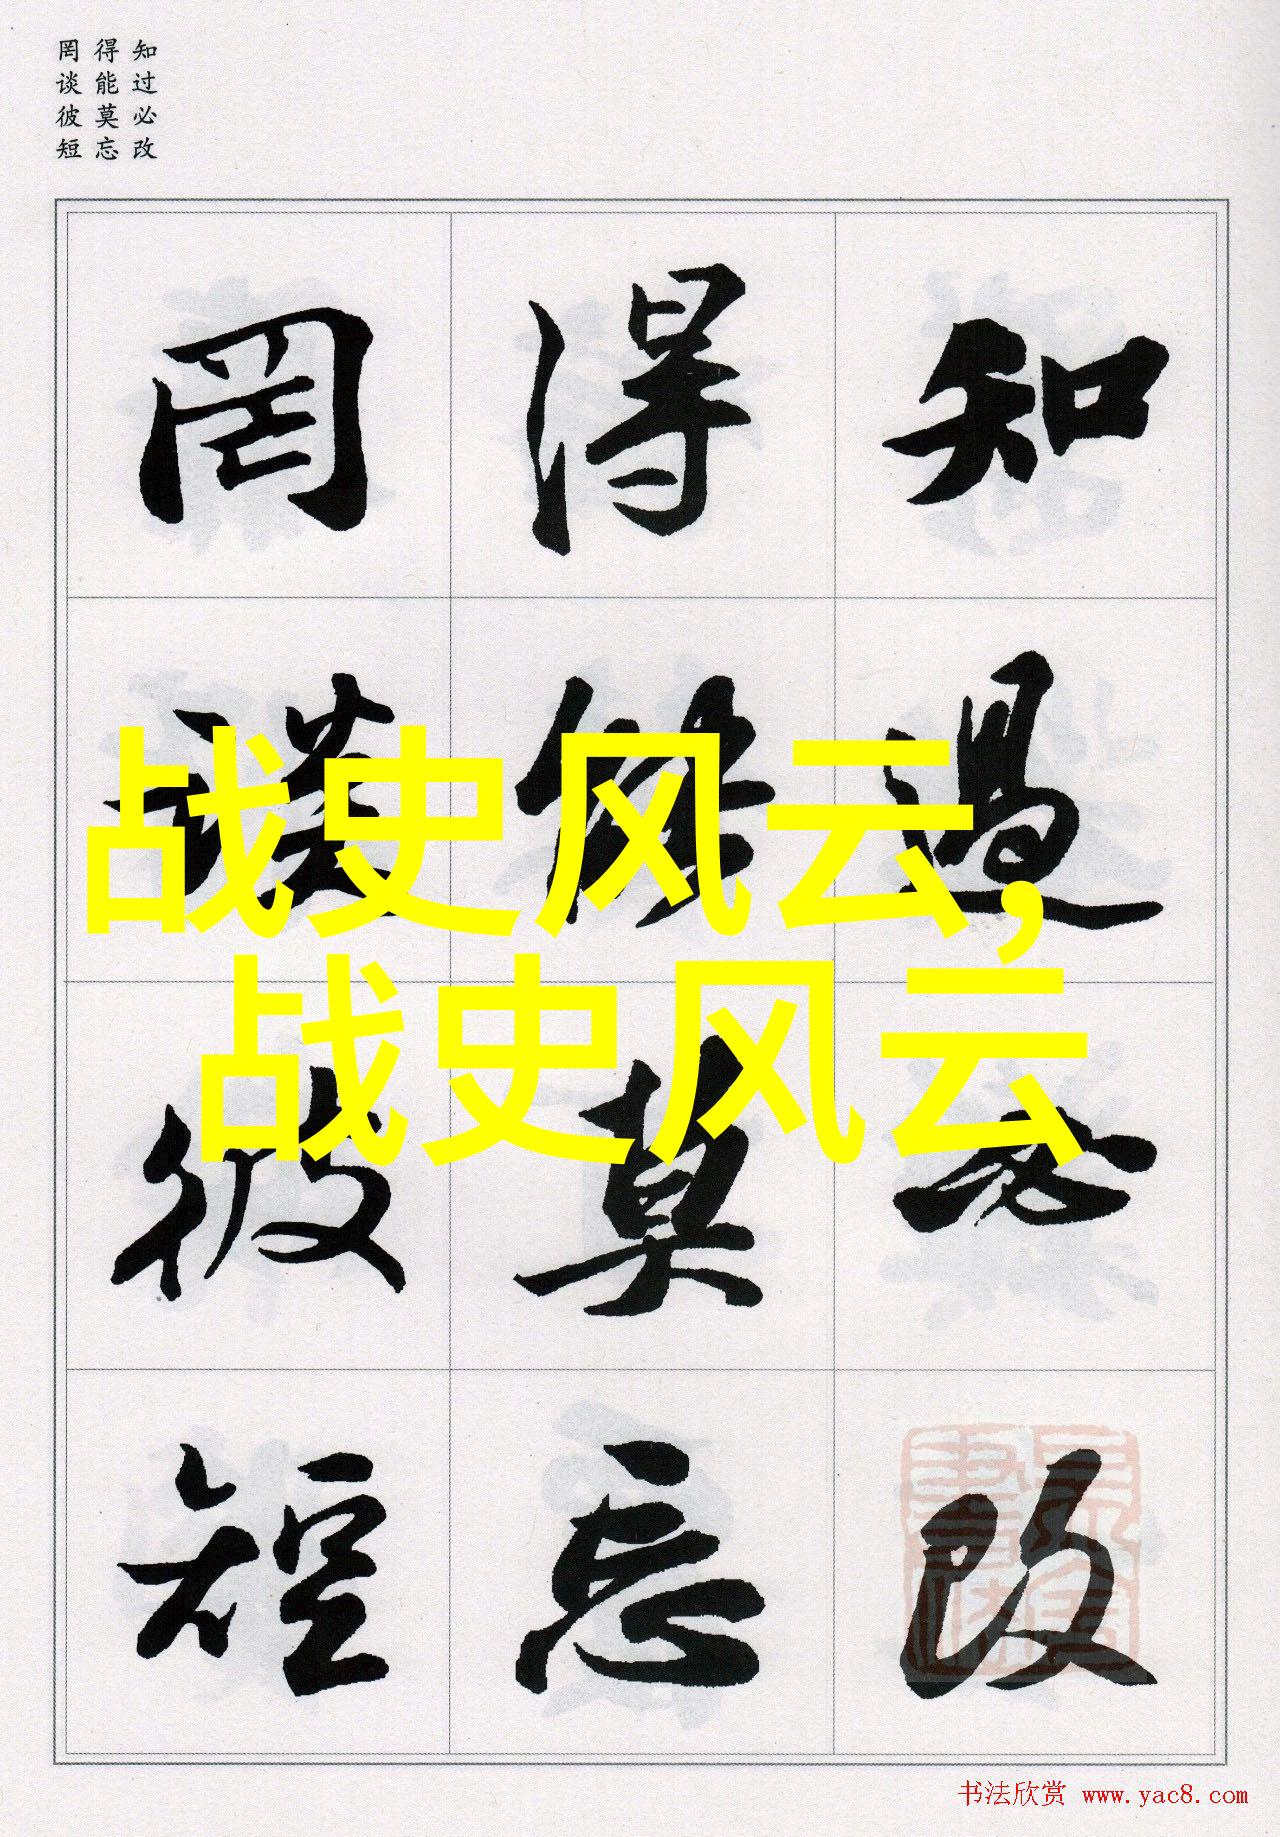 知过必改
得能莫忘
罔谈彼短
知過必改
得能莫忘
罔談彼短
战史风云,
战史风云
书法欣赏 www.yac8.com